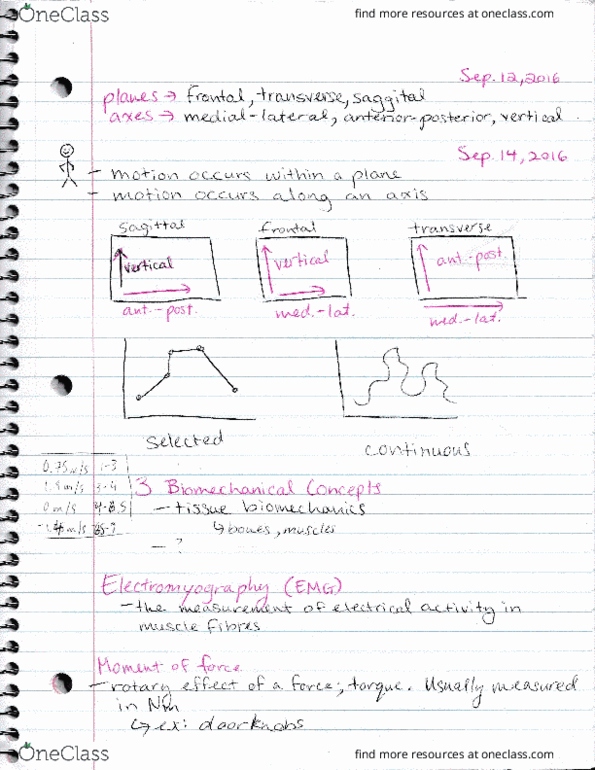 OneClass
find more resources at oneclass.com
Sep. 12, 2016
planes → frontal, transverse, saggital
axes → medial-lateral, anterior-posterior, vertical.
Sep. 14, 2016
- motion occurs within a plane
- motion occurs along an axis
sagittal frontal transverse
vertical vertical ant.-post.
ant.-post. med.-lat. med.-lat.
selected continuous
0.75 m/s 1-3
3-4
0 m/s 4-8.5
3 Biomechanical Concepts
- tissue biomechanics
↳ bones, muscles
- ?
Electromyography (EMG)
- the measurement of electrical activity in
muscle fibres
Moment of force
- rotary effect of a force; torque. Usually measured
in Nm
↳ ex: doorknobs
OneClass
find more resources at oneclass.com